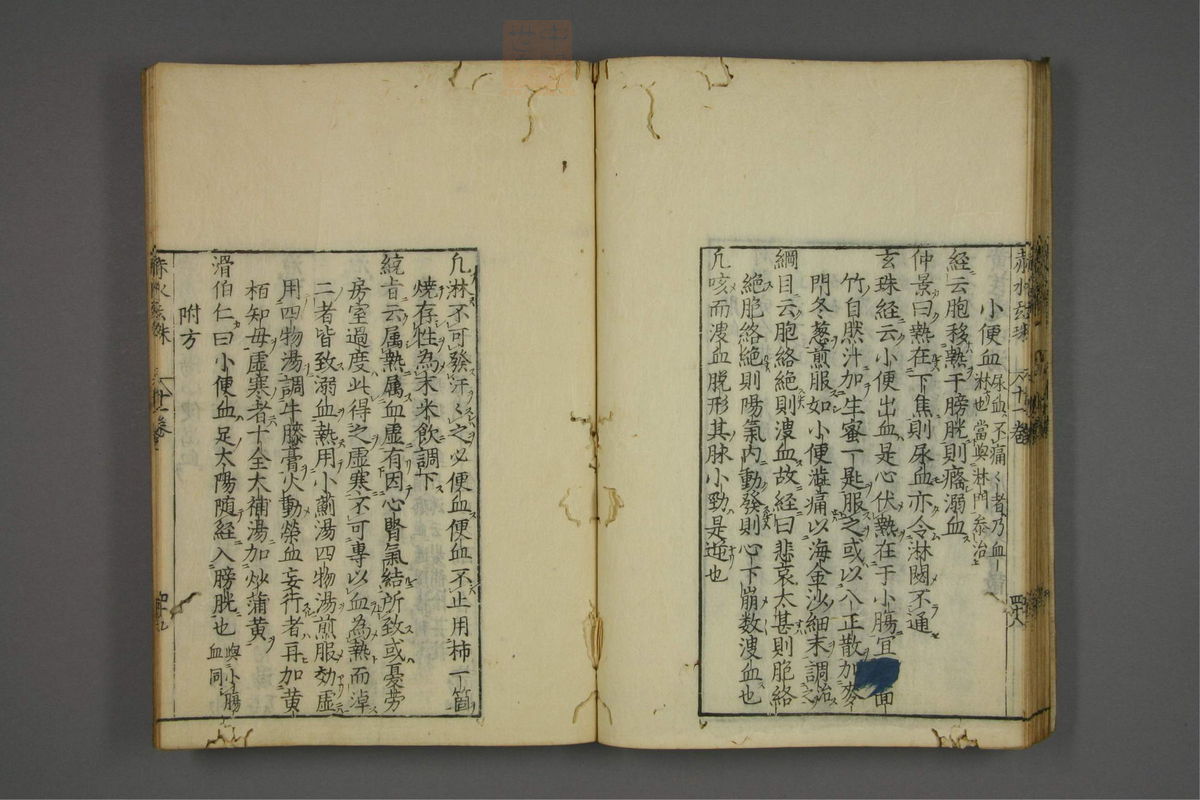 小便血 尿血不痛痛者乃血淋也當與淋門參治
經云胞移熱于膀胱則癃溺血
仲景曰熱在下焦則尿血亦令淋閟不通
玄珠經云小便出血是心伏熱在于小腸宜 面
竹自然汁加生蜜一匙服之或以八正散加麥
門冬葱煎服如小便澁痛以海金沙細末調治之
綱目云胞絡絕則溲血故經曰悲哀太甚則胞絡
絕胞絡絕則陽氣內動發則心下崩数溲血也
凡咳而溲血脫形其脉小勁是逆也
赤水玄珠 十一卷 四十八
凢淋不可發汗汗之必便血便血不止用柿一箇
燒存性為末米飲調下
統旨云属熱属血虛有因心腎氣結所致或憂劳
房室過度此得之虛寒不可專以血為熱而淖
二者皆致溺血熱用小薊湯四物湯煎服効虛
用四物湯調牛膝膏火動榮血妄行者再加黄
栢知母虛寒者十全大補湯加炒蒲黄
滑伯仁曰小便血足太陽随經入膀胱也 與小腸血同
附方
赤水玄珠 十一卷 四十九